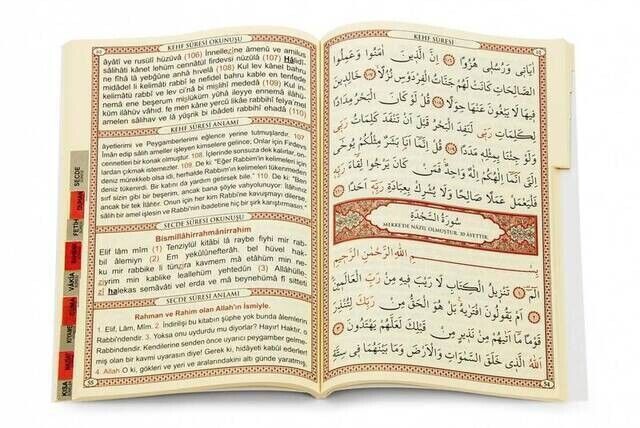 KEHF SÛRESİ OKUNUŞU
âyâtî ve rusulî hüzüvâ (106) İnnellezîne âmenû ve amilus
sâlihâti kânet lehüm cennâtül firdevsi nüzülâ (107) Hâlidî-
ne fîhâ lâ yebğûne anhâ hıvelâ (108) Kul lev kânel bahru
midâdel li kelimâti rabbî le nefidel bahru kable en tenfede
kelimâtü rabbî ve lev ci'nâ bi mislihî mededâ (109) Kul in-
nemâ ene beşerum mislüküm yûhâ ileyye ennemâ ilâhü-
küm ilâhüv vâhid, fe men kâne yercû likâe rabbihî felya'mel
amelen sâlihav ve lâ yüşrik bi ıbâdeti rabbihî ehadâ (110)
KEHF SÛRESİ ANLAMI
âyetlerimi ve Peygamberlerimi eğlence yerine tutmuşlardır. 107
İman edip salih ameller işleyen kimselere gelince; Onlar için Firdevs
cennetleri bir konak olmuştur. 108. İçlerinde sonsuza dek kalırlar, on-
lardan çıkmak istemezler. 109. De ki: "Eğer Rabbim'in kelimeleri için
deniz mürekkep olsa idi, herhalde Rabbim'in kelimeleri tükenmeden
deniz tükenirdi. Bir katını da yardım getirsek bile." 110. De ki: "Ben
sırf sizin gibi bir beşerim, ancak bana şöyle vahyolunuyor: İlâhınız
ancak bir tek İlâhtır. Onun için her kim Rabbi'ne kavuşmayı dilerse,
salih bir amel işlesin ve Rabbi'nin ibadetine hiç bir şirk karıştırmasın."
SECDE SÛRESİ OKUNUŞU
Bismillâhirrahmânirrahim
Elif lâm mîm (1) Tenzîylül kitâbi lâ raybe fîyhi mir rab-
bil âlemîyn (2) Em yekûlûnefterâh, bel hüvel hak-
ku mir rabbike li tünzira kavmem mâ etâhüm min ne-
zîyrim min kablike leallehüm yehtedûn (3) Allâhülle-
zî halekas semâvâti vel erda ve mâ beynehümâ fî sitteti
SECDE SÛRESİ ANLAMI
Rahman ve Rahim olan Allah'ın İsmiyle.
1. Elif, Lâm, Mîm. 2. İndirilişi bu kitabın şüphe yok bunda âlemlerin
Rabbi'ndendir. 3. Yoksa onu uydurdu mu diyorlar? Hayır! Haktır, o
Rabbindendir. Kendilerine senden önce uyarıcı peygamber gelme-
miş olan bir kavmi uyarasın diye! Gerek ki, hidâyeti kabûl ederler!
4. Allah O ki, gökleri ve yeri ve aralarındakini altı günde yaratmış,
55
SECDE
DUHAN
FETİH
VÂKIA
KISA
KEHF SÛRESİ
اٰيَاتٖي وَرُسُلٖي هُزُوًا ﴿١٠٦﴾ اِنَّ الَّذٖينَ اٰمَنُوا وَعَمِلُوا
الصَّالِحَاتِ كَانَتْ لَهُمْ جَنَّاتُ الْفِرْدَوْسِ نُزُلًا ﴿١٠٧﴾ خَالِدٖينَ
فٖيهَا لَا يَبْغُونَ عَنْهَا حِوَلًا ﴿١٠٨﴾ قُلْ لَوْ كَانَ الْبَحْرُ مِدَادًا
لِكَلِمَاتِ رَبّٖي لَنَفِدَ الْبَحْرُ قَبْلَ اَنْ تَنْفَدَ كَلِمَاتُ رَبّٖي
وَلَوْ جِئْنَا بِمِثْلِهٖ مَدَدًا ﴿١٠٩﴾ قُلْ اِنَّمَٓا اَنَا بَشَرٌ مِثْلُكُمْ يُوحٰٓى
اِلَيَّ اَنَّمَٓا اِلٰهُكُمْ اِلٰهٌ وَاحِدٌ فَمَنْ كَانَ يَرْجُوا لِقَٓاءَ رَبِّهٖ
فَلْيَعْمَلْ عَمَلًا صَالِحًا وَلَا يُشْرِكْ بِعِبَادَةِ رَبِّهٖٓ اَحَدًا ﴿١١٠﴾
سُورَةُ السَّجْدَةِ
MEKKE'DE NÂZİL OLMUŞTUR. 30 ÂYETTİR.
بِسْمِ اللّٰهِ الرَّحْمٰنِ الرَّحٖيمِ
الٓمٓ ﴿١﴾ تَنْزٖيلُ الْكِتَابِ لَا رَيْبَ فٖيهِ مِنْ رَبِّ الْعَالَمٖينَ
﴿٢﴾ اَمْ يَقُولُونَ افْتَرٰيهُ بَلْ هُوَ الْحَقُّ مِنْ رَبِّكَ لِتُنْذِرَ
قَوْمًا مَٓا اَتٰيهُمْ مِنْ نَذٖيرٍ مِنْ قَبْلِكَ لَعَلَّهُمْ يَهْتَدُونَ ﴿٣﴾
اَللّٰهُ الَّذٖي خَلَقَ السَّمٰوَاتِ وَالْاَرْضَ وَمَا بَيْنَهُمَا فٖي سِتَّةِ
54